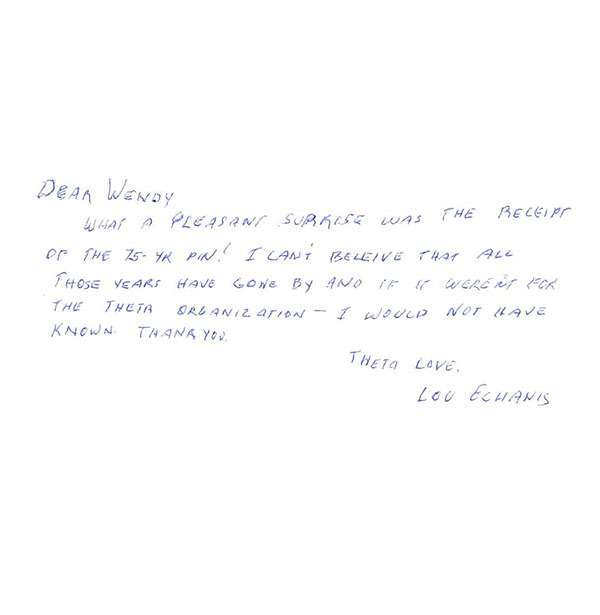 DEAR WENDY
WHAT A PLEASANT SURPRISE WAS THE RECEIPT
OF THE 75-YR PIN! I CAN'T BELEIVE THAT ALL
THOSE YEARS HAVE GONE BY AND IF IT WEREN'T FOR
THE THETA ORGANIZATION — I WOULD NOT HAVE
KNOWN. THANK YOU.
THETA LOVE,
LOU ECHANIS